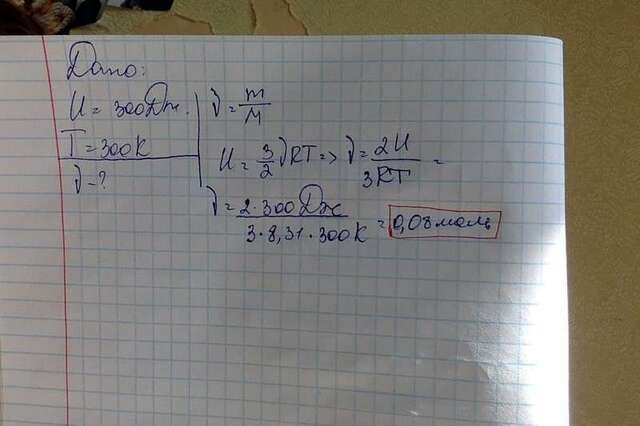 Дано:
U = 300Дж.
T = 300К
ν - ?
ν = m/M
U = 3/2 νRT => ν = 2U/3RT =
ν = 2·300Дж/3·8,31·300К = 0,08моль